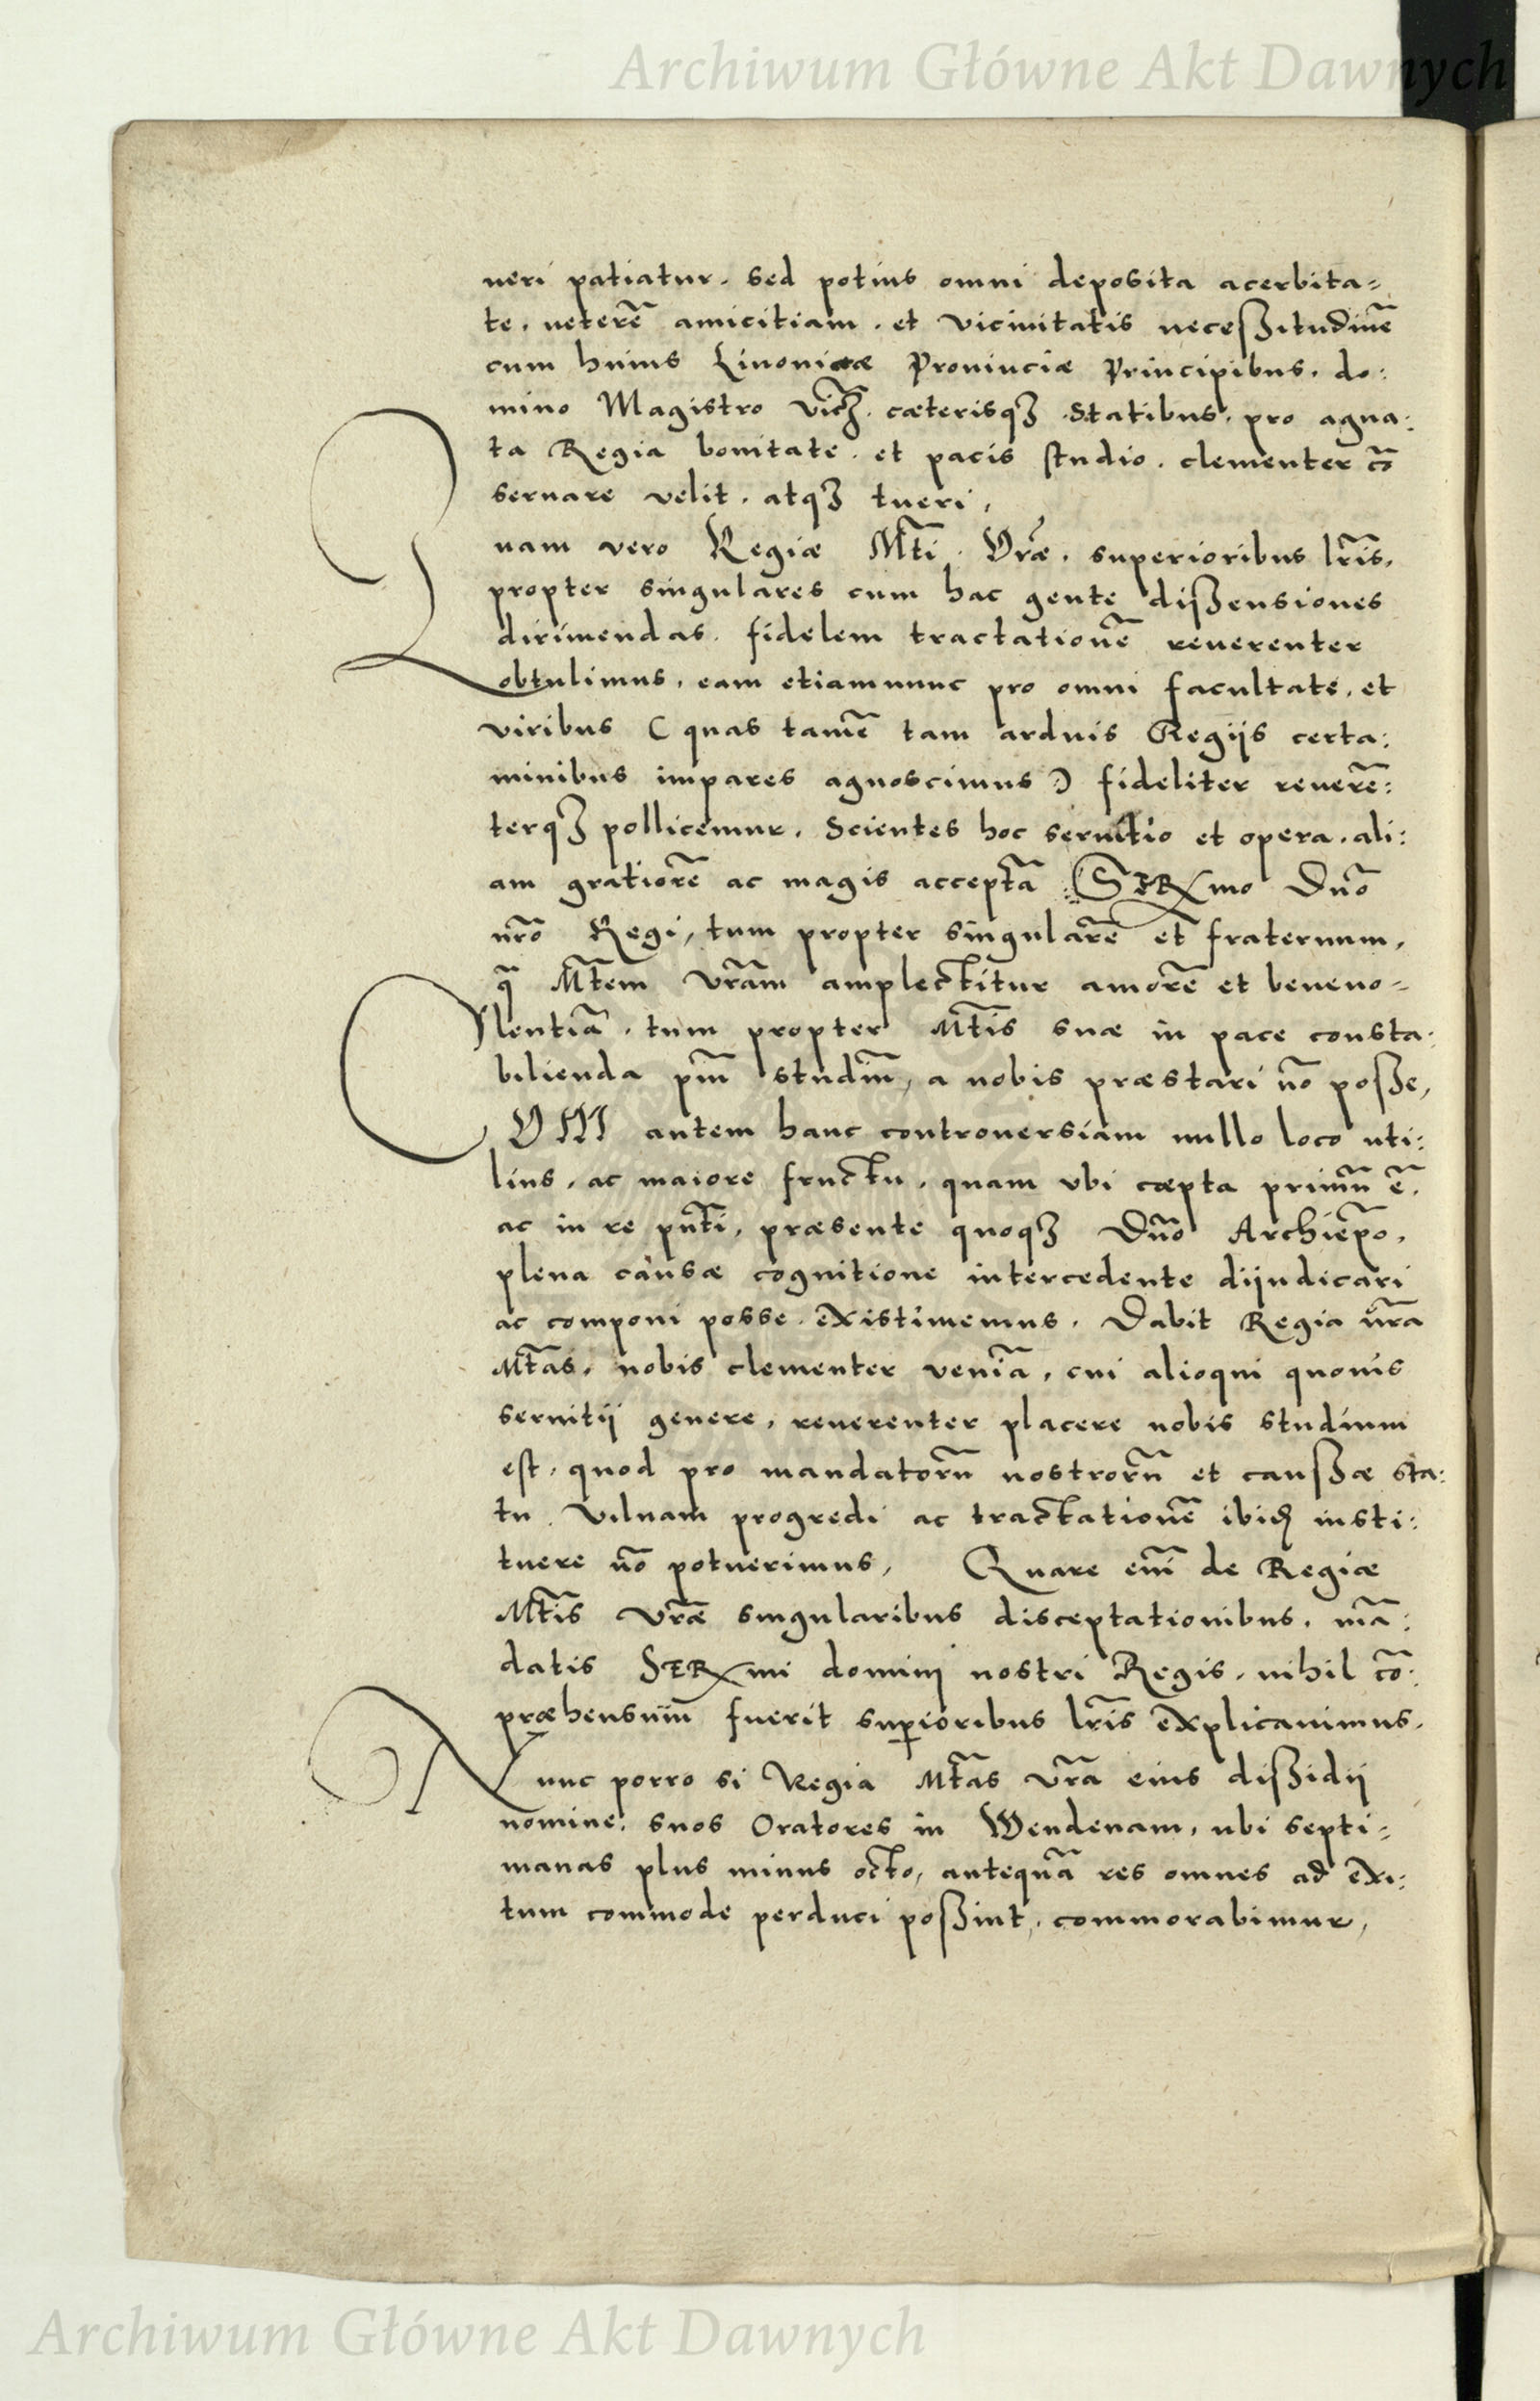 Archiwum Główne Akt Dawnych
neri patiatur. sed potius omni deposita acerbita=
te.ueterē amicitiam. et vicinitatis neceßitudinē
cum huius Liuonicæ Prouinciæ Principibus. do:
mino Magistro vicꝫ. cæterisqꝫ Statibus. pro agna:
ta Regia bonitate. et pacis studio. clementer cō
seruare velit. atqꝫ tueri,
Quam vero Regiæ Mti̅. Vræ̅. superioribus lri̅s,
propter singulares cum hac gente dißensiones
dirimendas. fidelem tractationē reuerenter
obtulimus, eam etiamnunc pro omni facultate. et
viribus (quas tamē tam arduis Regijs certa:
minibus impares agnoscimus) fideliter reuerē:
terqꝫ pollicemur. Scientes hoc seruitio et opera. ali:
am gratiorē ac magis acceptā SERmo Dn̅o
nr̅o Regi, tum propter singularē et fraternum,
q̅ Mt̅em vr̅am amplectitur amorē et beneuo=
lentiā. tum propter Mt̅is suæ in pace consta:
bilienda piu̅ studiu̅, a nobis præstari no̅ poße,
CVM autem hanc controuersiam nullo loco uti:
lius, ac maiore fructu. quam vbi cæpta primu̅ ē.
ac in re pn̅ti, præsente quoqꝫ Dn̅o Archiep̅o,
plena causæ cognitione intercedente diiudicari
ac componi posse. existimemus. Dabit Regia vr̅a
Mt̅as, nobis clementer veniā, cui alioqui quouis
seruitij genere, reuerenter placere nobis studium
est, quod pro mandatoru̅ nostroru̅ et caußæ sta:
tu Vilnam progredi ac tractationē ibid. insti:
tuere no̅ potuerimus, Quare eni̅ de Regiæ
Mt̅is Vræ̅ singularibus disceptationibus. mā:
datis SERmi domini nostri Regis. nihil cō:
præhensum fuerit sup̲ioribus lri̅s explicauimus.
Nunc porro si Regia Mt̅as vr̅a eius dißidij
nomine. suos Oratores in Wendenam, ubi septi=
manas plus minus octo, antequā res omnes ad exi:
tum commode perduci poßint, commorabimur,
Archiwum Główne Akt Dawnych